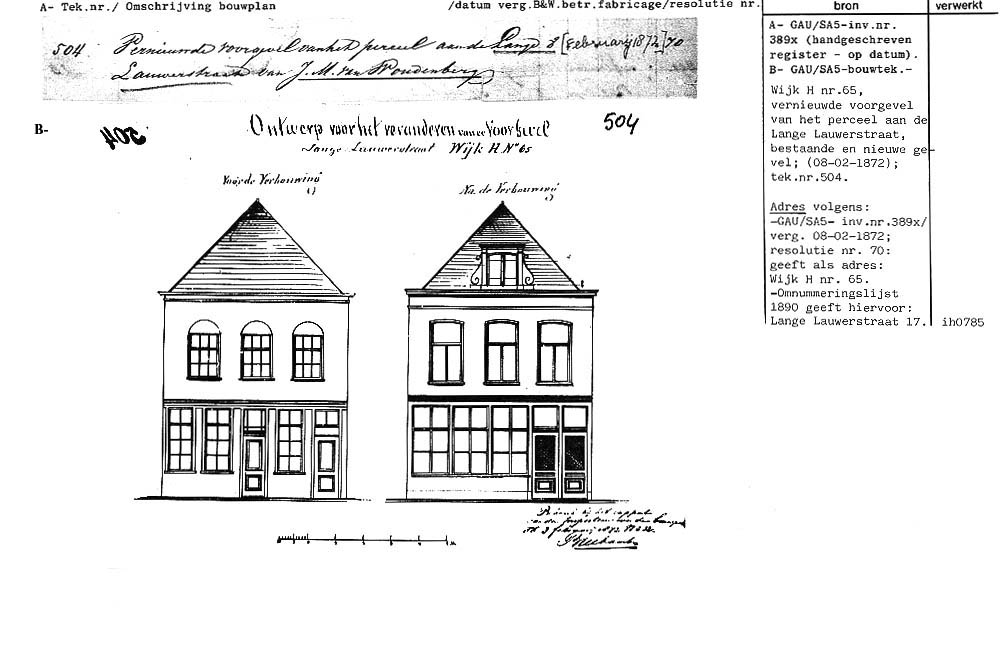 A- Tek.nr./ Omschrijving bouwplan /datum verg.B&W.betr.fabricage/resolutie nr.
504. Vernieuwde voorgevel van het perceel aan de Lange 8 [Februarij 1872] 70
Lauwerstraat van J. M. van Woudenberg
B-
504
Ontwerp voor het veranderen van de Voorgevel
504
Lange Lauwerstraat Wijk H No 65
Voor de Verbouwing
Na de Verbouwing
bron
A- GAU/SA5-inv.nr.
389x (handgeschreven
register - op datum).
B- GAU/SA5-bouwtek.-
Wijk H nr.65,
vernieuwde voorgevel
van het perceel aan de
Lange Lauwerstraat,
bestaande en nieuwe ge-
vel; (08-02-1872);
tek.nr.504.
Adres volgens:
-GAU/SA5- inv.nr.389x/
verg. 08-02-1872;
resolutie nr. 70:
geeft als adres:
Wijk H nr. 65.
-Omnummeringslijst
1890 geeft hiervoor:
Lange Lauwerstraat 17.
verwerkt
ih0785